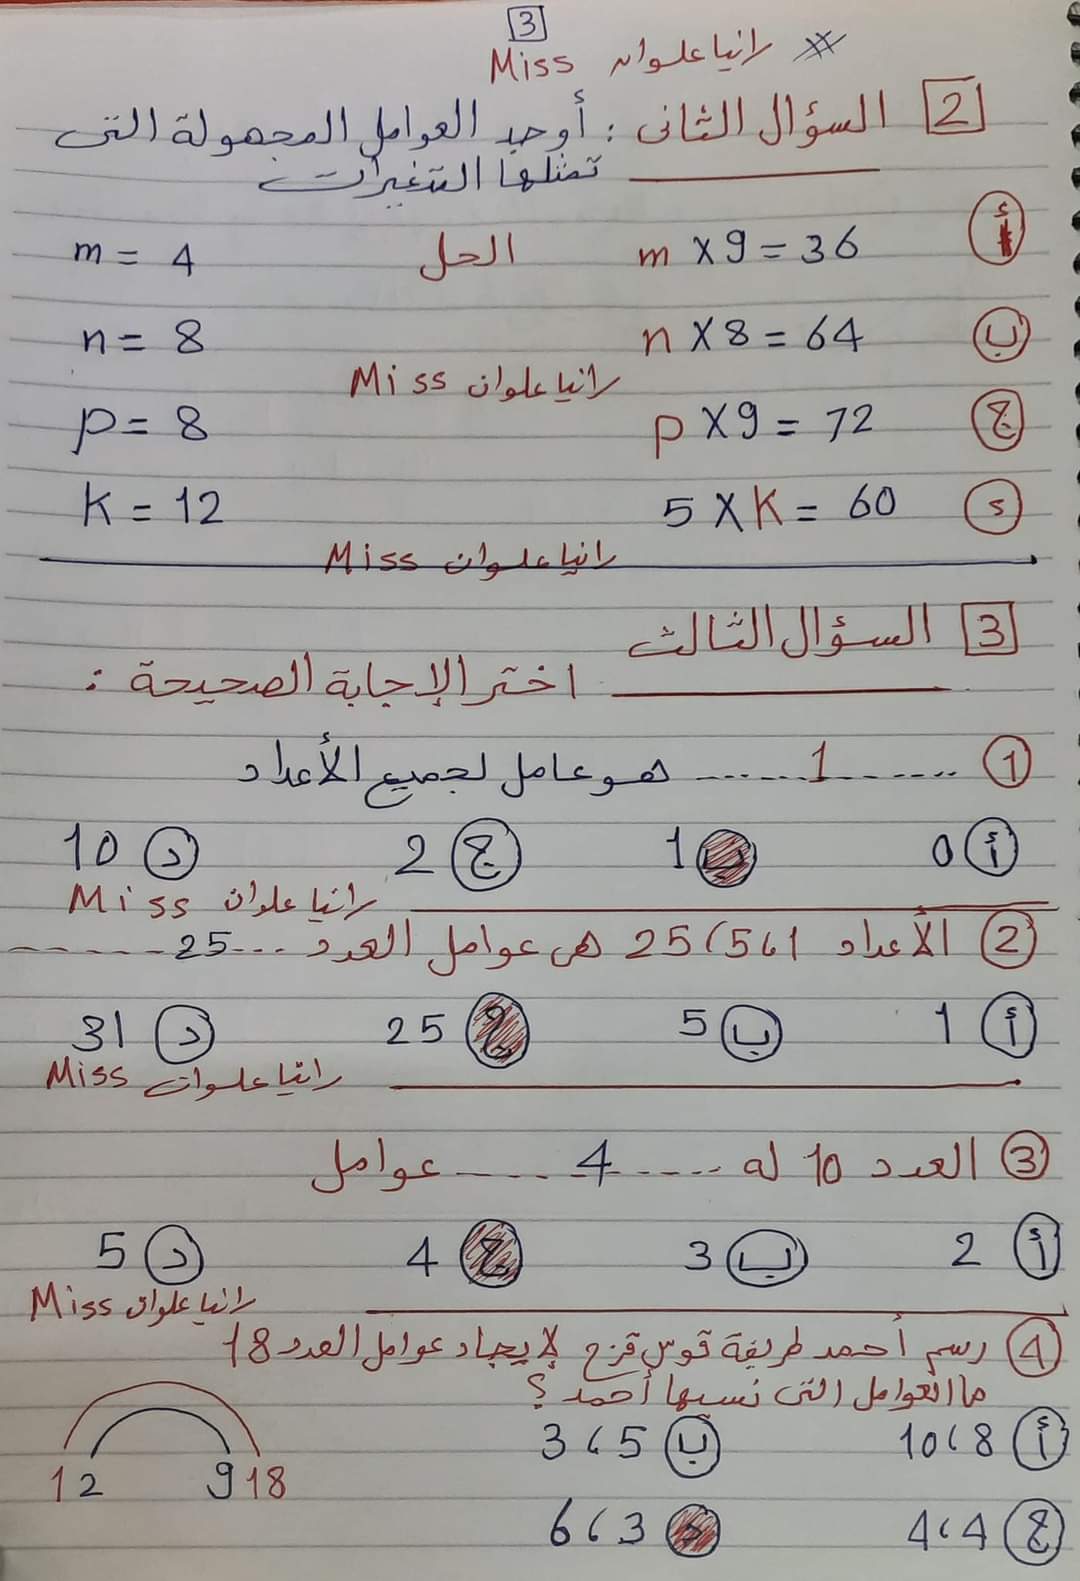 3
رانيا علوان Miss
2 السؤال الثانى : أوجد العوامل المجهولة التى
تمثلها المتغيرات
أ m × 9 = 36 الحل m = 4
ب n × 8 = 64 n = 8
رانيا علوان Miss
ج p × 9 = 72 p = 8
د 5 × K = 60 K = 12
رانيا علوان Miss
3 السؤال الثالث
اختر الإجابة الصحيحة :
1 ......1...... هو عامل لجميع الأعداد
أ 0 ب 1 ج 2 د 10
رانيا علوان Miss
2 الأعداد 1، 5، 25 هى عوامل العدد ...25......
أ 1 ب 5 ج 25 د 31
رانيا علوان Miss
3 العدد 10 له .....4..... عوامل
أ 2 ب 3 ج 4 د 5
رانيا علوان Miss
4 رسم أحمد طريقة قوس قزح لإيجاد عوامل العدد 18
ما العوامل التى نسيها أحمد ؟
أ 8 ، 10 ب 5 ، 3
1 2 9 18
ج 4 ، 4 د 3 ، 6